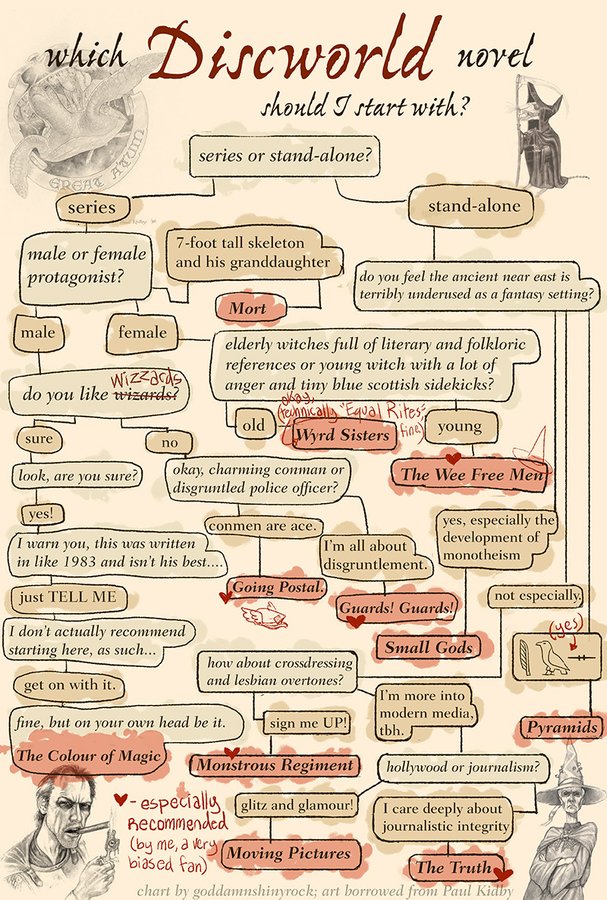 which Discworld novel
should I start with?
GREAT A'TUIN
series or stand-alone?
series
stand-alone
male or female
protagonist?
7-foot tall skeleton
and his granddaughter
Mort
do you feel the ancient near east is
terribly underused as a fantasy setting?
male
female
elderly witches full of literary and folkloric
references or young witch with a lot of
anger and tiny blue scottish sidekicks?
Wizzards
do you like wizards?
old
okay,
(technically "Equal Rites"
fine)
Wyrd Sisters
young
The Wee Free Men
sure
no
look, are you sure?
okay, charming conman or
disgruntled police officer?
yes!
conmen are ace.
yes, especially the
development of
monotheism
I warn you, this was written
in like 1983 and isn't his best....
I'm all about
disgruntlement.
just TELL ME
Going Postal.
Guards! Guards!
not especially.
(yes)
I don't actually recommend
starting here, as such...
Small Gods
how about crossdressing
and lesbian overtones?
get on with it.
I'm more into
modern media,
tbh.
fine, but on your own head be it.
sign me UP!
Pyramids
The Colour of Magic
Monstrous Regiment
hollywood or journalism?
♥ - especially
Recommended
(by me, a very
biased fan)
glitz and glamour!
I care deeply about
journalistic integrity
Moving Pictures
The Truth
chart by goddamnshinyrock; art borrowed from Paul Kidby